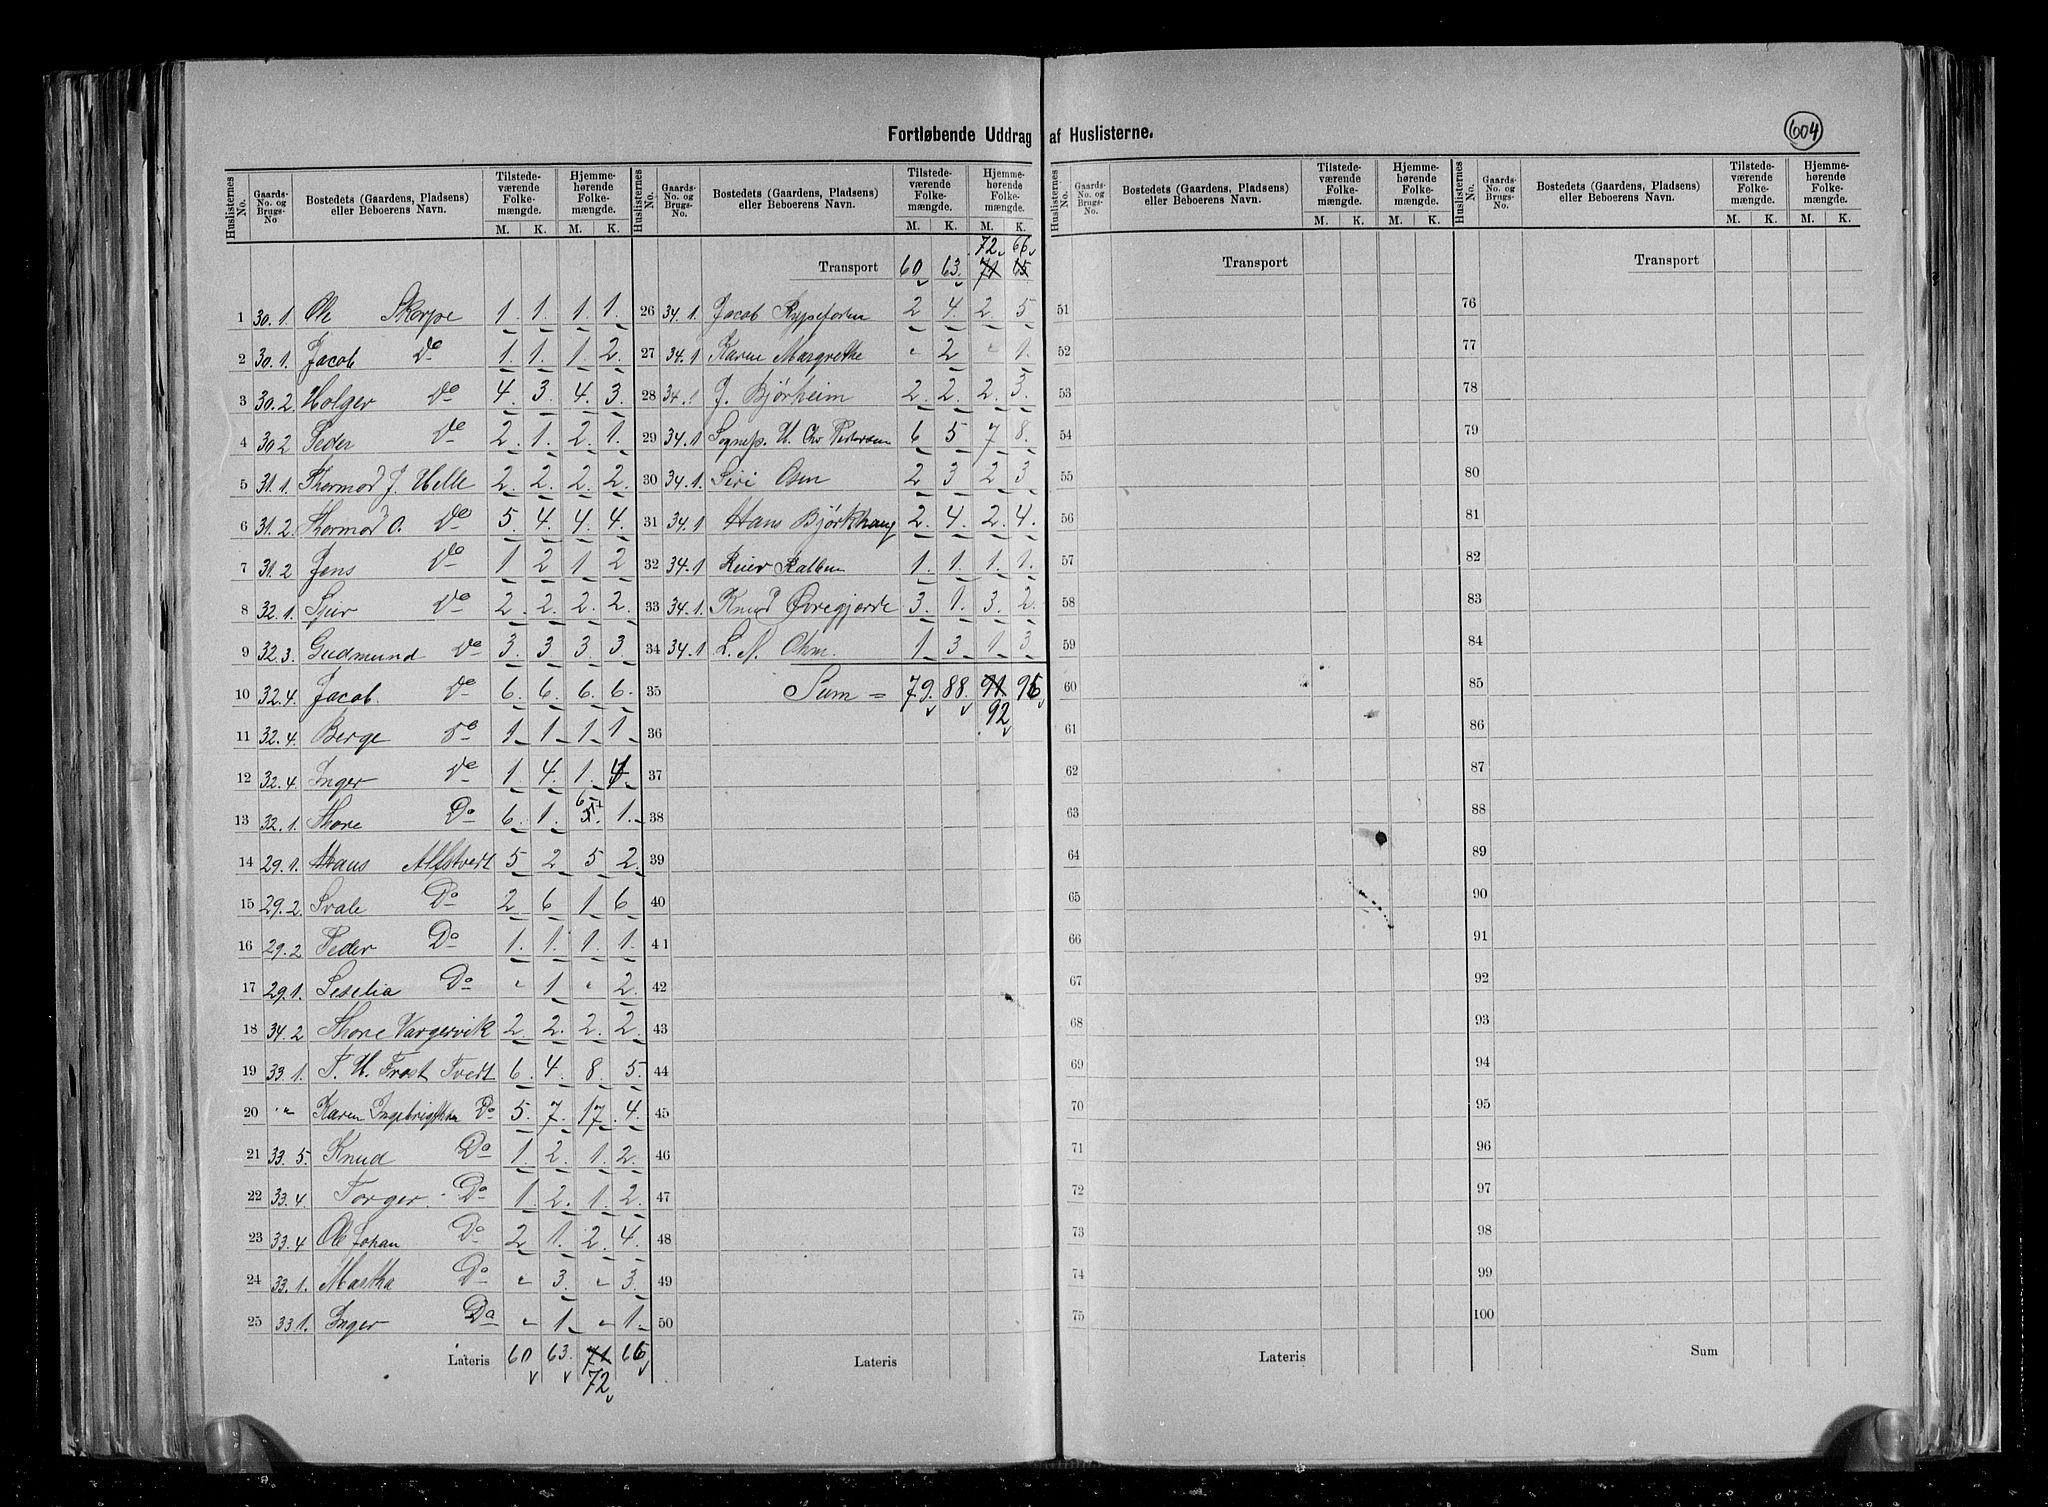 Fortløbende Uddrag af Huslisterne.
604
Huslisternes No. Gaards-No. og Brugs-No Bostedets (Gaardens, Pladsens) eller Beboerens Navn. Tilstedeværende Folkemængde. M. K. Hjemmehørende Folkemængde. M. K.
1 30.1. Ole Skorpe 1. 1. 1. 1.
2 30.1. Jacob Do 1. 1. 1. 2.
3 30.2. Holger Do 4. 3. 4. 3.
4 30.2 Peder Do 2. 1. 2. 1.
5 31.1. Thormod J. Helle 2. 2. 2. 2.
6 31.2. Thormod O. Do 5. 4. 4. 4.
7 31.2 Jens Do 1 2 1 2
8 32.1. Sjur Do 2. 2. 2. 2.
9 32.3. Gudmund Do 3. 3. 3. 3.
10 32.4. Jacob. Do 6. 6. 6. 6.
11 32.4. Berge Do 1 1 1 1
12 32.4. Inger Do 1. 4. 1. 4
13 32.1. Thore Do 6. 1. 5. 6 1.
14 29.1. Hans Alfstvedt 5 2 5 2
15 29.2. Svale Do 2 6 1 6
16 29.2 Peder Do 1. 1. 1. 1.
17 29.1. Seselia Do " 1 " 2.
18 34.2 Thore Vargervik 2. 2. 2. 2.
19 33.1. T. H. Frost Tvedt 6. 4. 8. 5.
20 " " Karen Do 5. 7. 17. 4.
21 33.5. Knud Do 1. 2. 1. 2.
22 33.4. Torger. Do 1. 2. 1. 2.
23 33.4 Ole Johan Do 2 1. 2. 4.
24 33.1. Martha Do " 3. " 3.
25 33.1. Inger Do " 1 " 1.
Lateris 60 63. 71 66
72
Huslisternes No. Gaards-No. og Brugs-No. Bostedets (Gaardens, Pladsens) eller Beboerens Navn. Tilstedeværende Folkemængde. M. K. Hjemmehørende Folkemængde. M. K.
72 66
Transport 60 63. 71 65
26 34.1. Jacob 2 4. 2. 5
27 34.1 Karen Margrethe " 2 " 1.
28 34.1 J. Bjørheim 2. 2. 2. 3.
29 34.1 Sognep. H. Chr Petersen 6 5 7 8.
30 34.1. Siri Osen 2 3 2 3
31 34.1 Hans Bjørkhaug 2. 4. 2. 4.
32 34.1 1. 1. 1. 1.
33 34.1. Knud Øvregjorde 3. 1. 3. 2.
34 34.1 L. N. Ohm. 1 3 1 3
35 Sum = 79. 88. 91 96
92
36
37
38
39
40
41
42
43
44
45
46
47
48
49
50
Lateris
Huslisternes No. Gaards-No. og Brugs-No. Bostedets (Gaardens, Pladsens) eller Beboerens Navn. Tilstedeværende Folkemængde. M. K. Hjemmehørende Folkemængde. M. K.
Transport
51
52
53
54
55
56
57
58
59
60
61
62
63
64
65
66
67
68
69
70
71
72
73
74
75
Lateris
Huslisternes No. Gaards-No. og Brugs-No. Bostedets (Gaardens, Pladsens) eller Beboerens Navn. Tilstedeværende Folkemængde. M. K. Hjemmehørende Folkemængde. M. K.
Transport
76
77
78
79
80
81
82
83
84
85
86
87
88
89
90
91
92
93
94
95
96
97
98
99
100
Sum